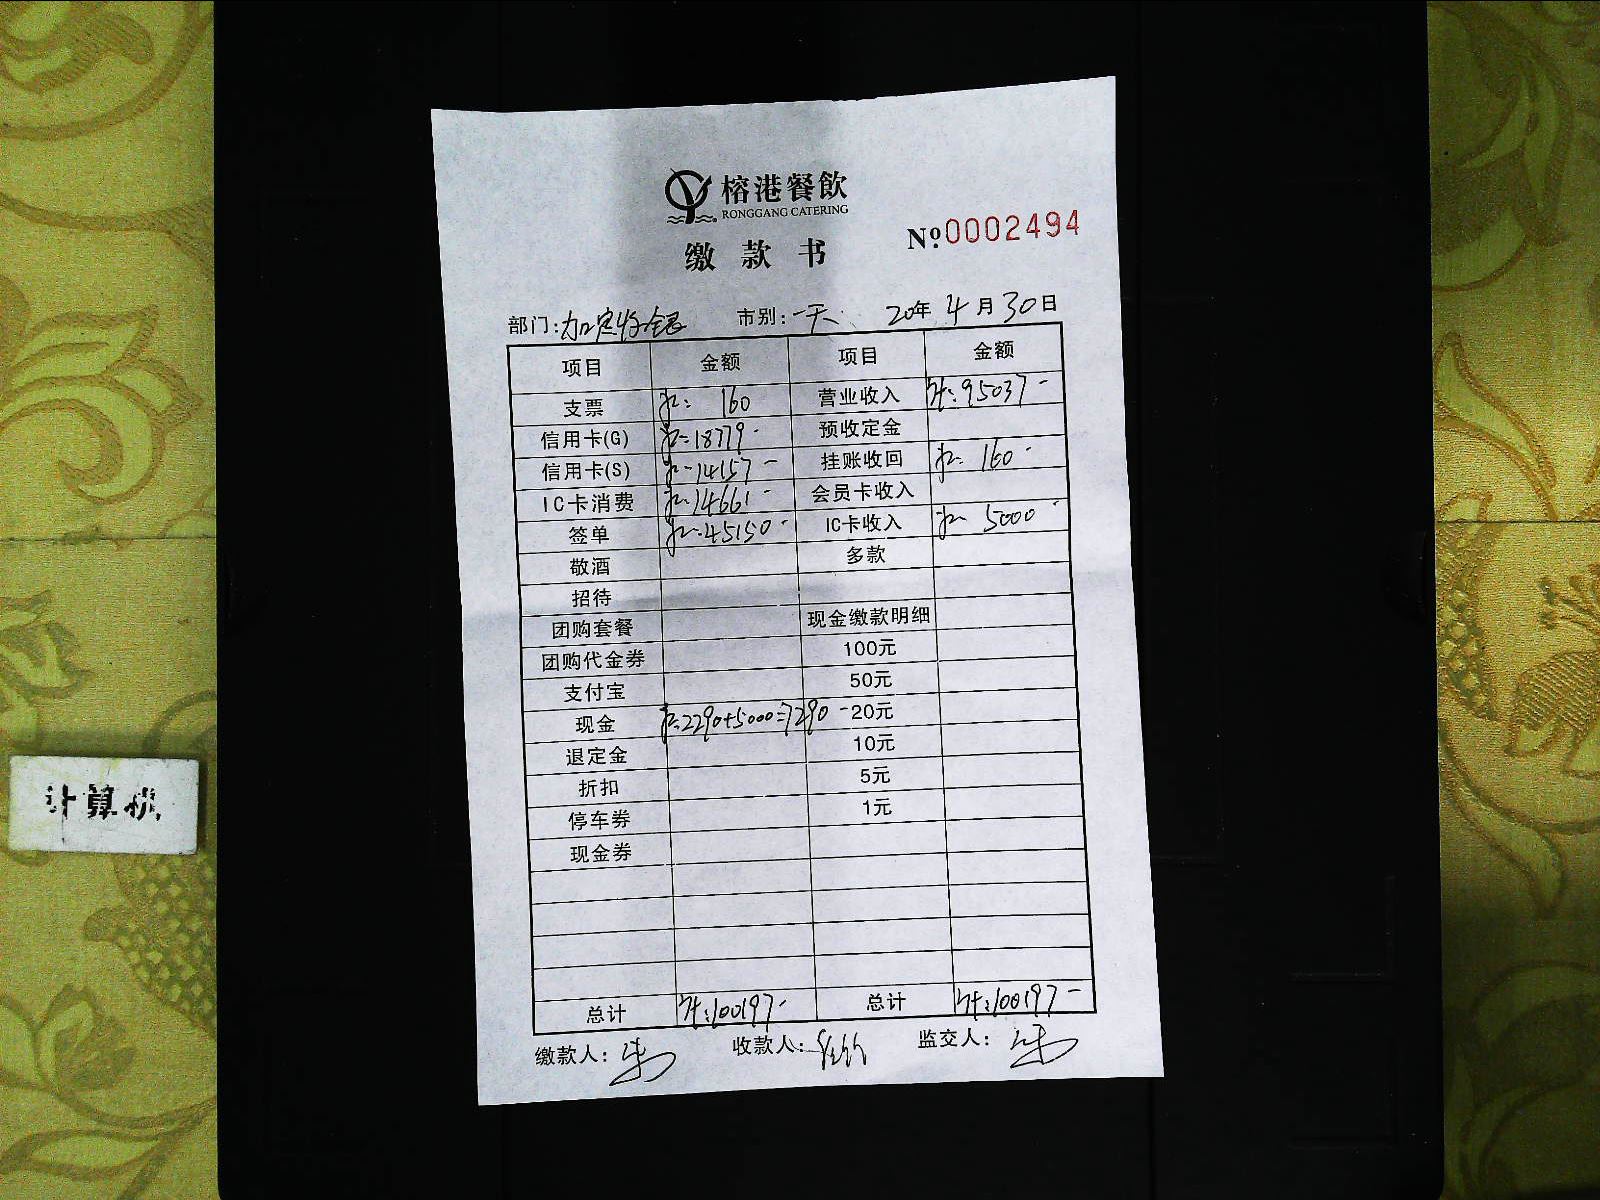 榕港餐飲
RONGGANG CATERING
缴款书
№ 0002494
部门: 加定收银 市别: 一天 20年4月30日
项目 金额 项目 金额
支票 160 营业收入 95037-
信用卡(G) 18779- 预收定金
信用卡(S) 14157- 挂账收回 160-
IC卡消费 14661- 会员卡收入
签单 45150- IC卡收入 5000-
敬酒 多款
招待
团购套餐 现金缴款明细
团购代金券 100元
支付宝 50元
现金 2290+5000=7290- 20元
退定金 10元
折扣 5元
停车券 1元
现金券
总计 100197- 总计 100197-
缴款人: 收款人: 监交人:
计算机